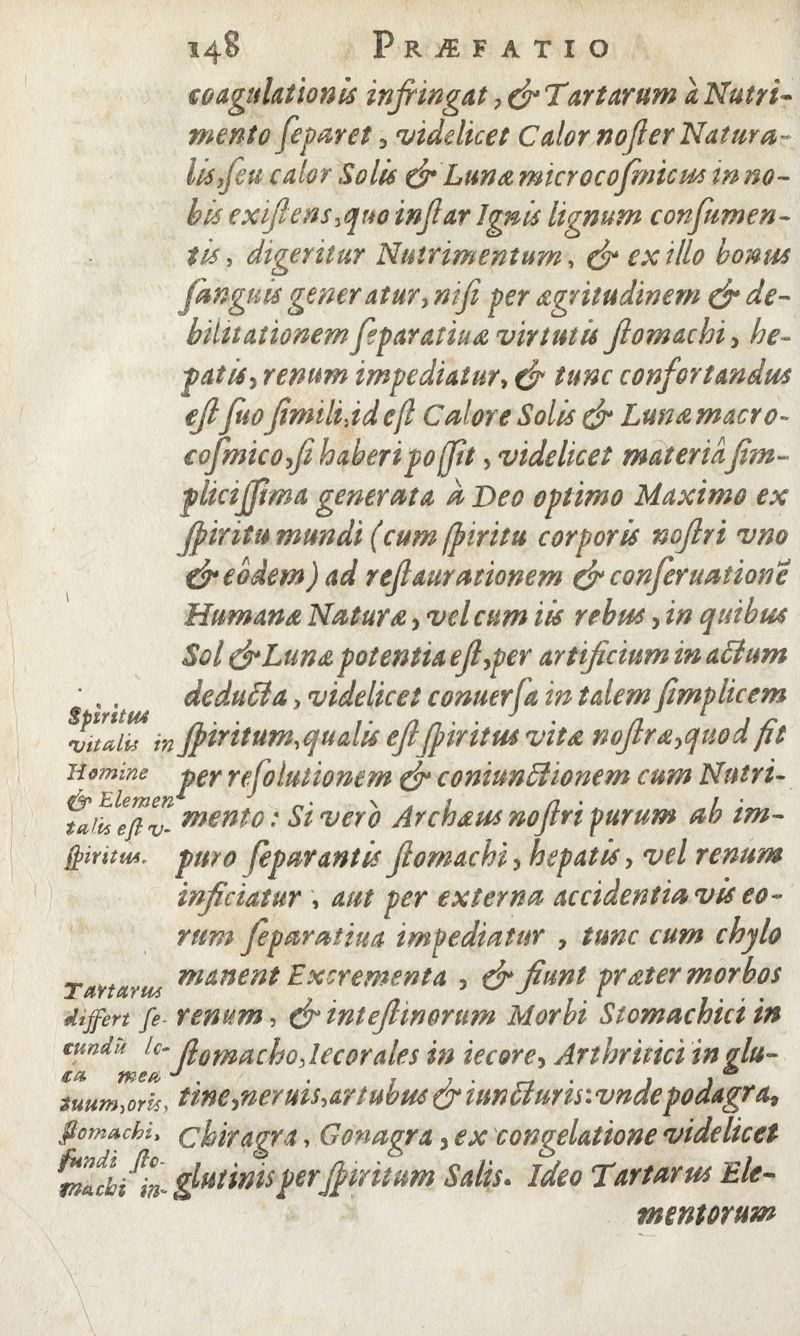 148 PRÆFATIO
coagulationis infringat, & Tartarum à Nutri-
mento ſeparet, videlicet Calor noſter Natura-
lis, ſeu calor Solis & Lunæ microcoſmicus in no-
bis exiſtens, quo inſtar Ignis lignum conſumen-
tis, digeritur Nutrimentum, & ex illo bonus
ſanguis generatur, niſi per ægritudinem & de-
bilitationem ſeparatiuæ virtutis ſtomachi, he-
patis, renum impediatur, & tunc confortandus
eſt ſuo ſimili, id eſt Calore Solis & Lunæ macro-
coſmico, ſi haberi poſſit, videlicet materiâ ſim-
pliciſſima generata à Deo optimo Maximo ex
ſpiritu mundi (cum ſpiritu corporis noſtri vno
& eôdem) ad reſtaurationem & conſeruationẽ
Humanæ Naturæ, vel cum iis rebus, in quibus
Sol & Lunæ potentia eſt, per artificium in actum
deducta, videlicet conuerſa in talem ſimplicem
ſpiritum, qualis eſt ſpiritus vitæ noſtræ, quod fit
per reſolutionem & coniunctionem cum Nutri-
mento: Si verò Archæus noſtri purum ab im-
puro ſeparantis ſtomachi, hepatis, vel renum
inficiatur, aut per externa accidentia vis eo-
rum ſeparatiua impediatur, tunc cum chylo
manent Excrementa, & fiunt præter morbos
renum, & inteſtinorum Morbi Stomachici in
ſtomacho, Iecorales in iecore, Arthritici in glu-
tine, neruis, artubus & iuncturis: vnde podagra,
Chiragra, Gonagra, ex congelatione videlicet
glutinis per ſpiritum Salis. Ideo Tartarus Ele-
mentorum
Spiritus
vitalis in
Homine
& Elemen
talis eſt v-
ſpiritus.
Tartarus
differt ſe-
cundũ lo-
ca mea
tuum, oris,
ſtomachi,
fundi ſto-
machi in-